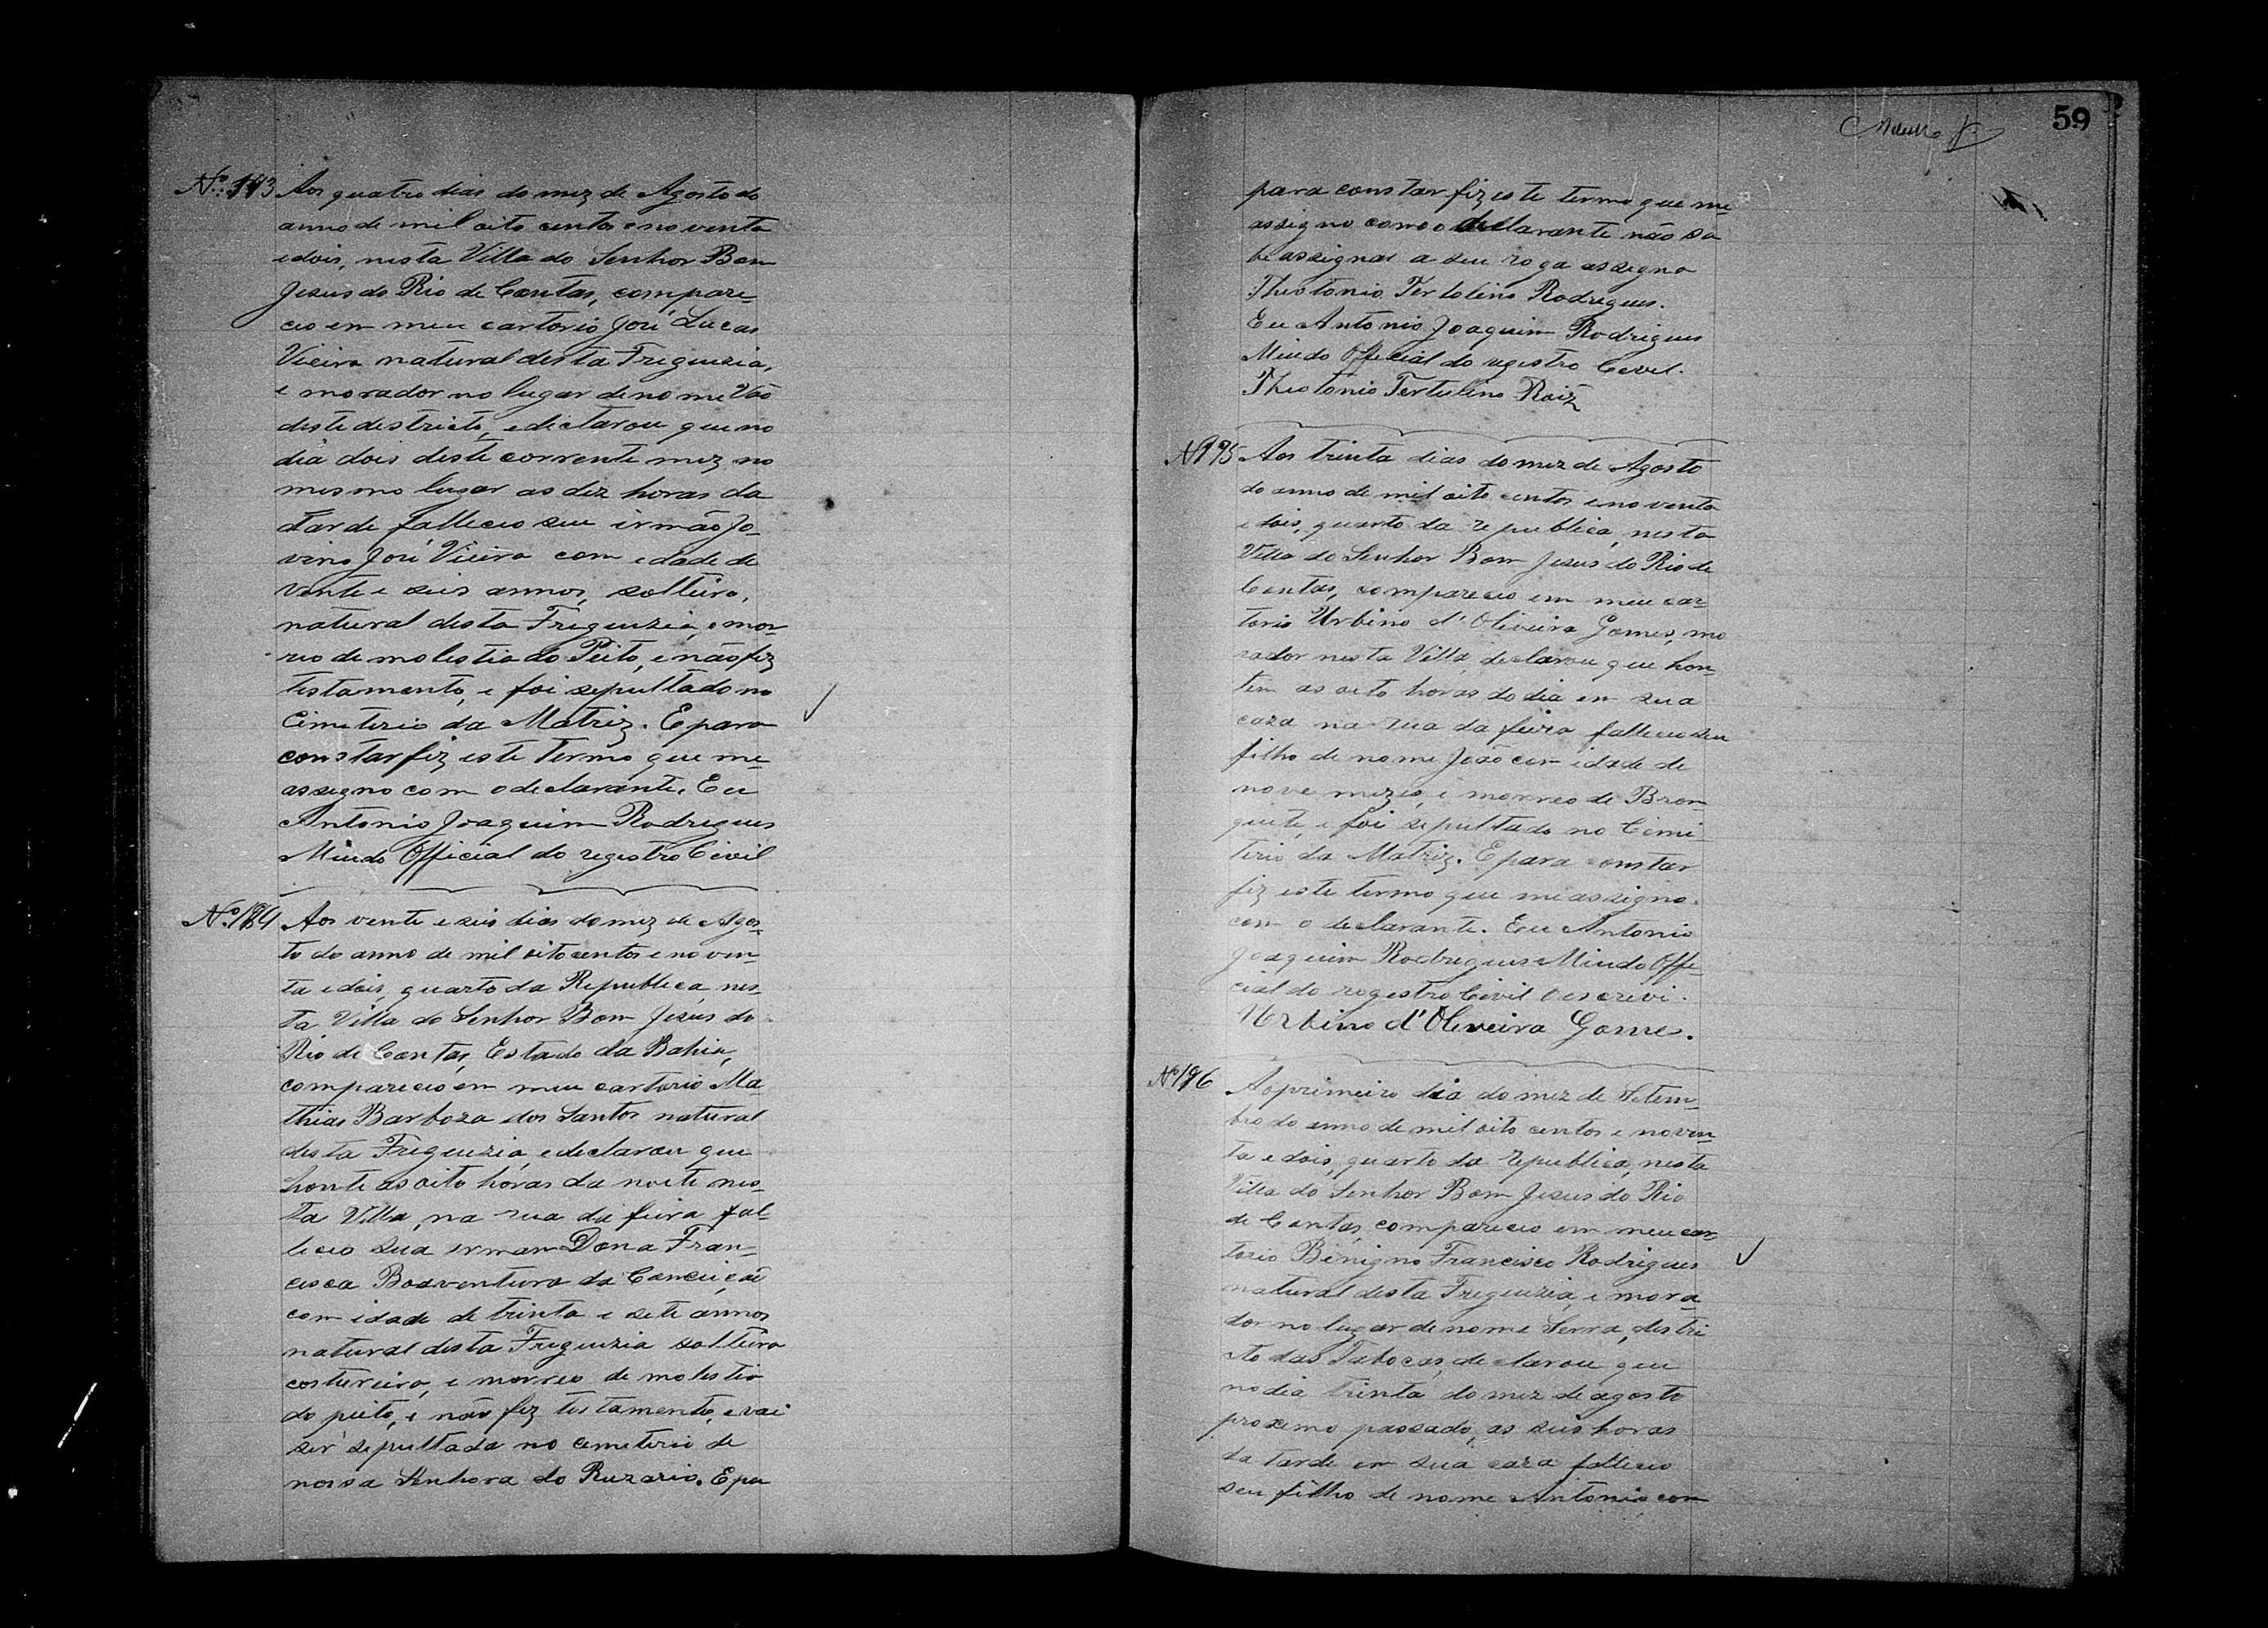 59
Nº 193 Aos quatro dias do mez de Agosto do
anno de mil oito centos e noventa
e dois, nesta Villa do Senhor Bom
Jesus do Rio de Contas, compare-
ceo em meu cartorio José Lucas
Vieira natural desta Freguezia,
e morador no lugar de nome Vão
deste destricto, e declarou que no
dia dois deste corrente mez no
mesmo lugar as dez horas da
tarde falleceo seu irmão Jo-
vino José Vieira com edade de
vente e seis annos, solteiro,
natural desta Freguezia, e mor-
reo de molestia do Peito, e não fez
testamento, e foi sepultado no
Cimeterio da Matriz. E para
constar fiz este termo que me
assegno com o declarante. Eu
Antonio Joaquim Rodrigues
Miudo Official do registro Civil
Nº 194 Aos vente e seis dias do mez de Agos-
to do anno de mil oito centos e noven-
ta e dois, quarto da Republica, nes-
ta Villa do Senhor Bom Jesus do
Rio de Contas, Estado da Bahia,
compareceo em meu cartorio Ma-
thias Barboza dos Santos natural
desta Freguezia, e declarou que
honte as oito horas da noite nes-
ta Villa, na rua da feira fal-
leceo sua irman Dona Fran-
cisca Boaventura da Conceição
com idade de trinta e sete annos
natural desta Freguezia solteira
costureira, e morreo de molestia
do peito, e não fez testamento, e vai
ser sepultada no cemeterio de
nossa Senhora do Ruzario. E pa
para constar fiz este termo que me
assigno como o declarante não sa
be assignar a seu rogo assegna
Theotonio Tertolino Rodrigues.
Eu Antonio Joaquim Rodrigues
Miudo Official do registro Cevel.
Theotonio Tertulino Roiz
Nº 195 Aos trinta dias do mez de Agosto
do anno de mil oito centos e noventa
e dois, quarto da republica, nesta
Villa do Senhor Bom Jesus do Rio de
Contas, compareceo em meu car-
torio Urbino d'Oliveira Gomes, mo
rador nesta Villa, declarou que hon-
tem as oito horas do dia em sua
caza na rua da feira falleceo seu
filho de nome João com idade de
nove mezes, e morreo de Bron-
quite, e foi sepultado no Cimi-
terio da Matriz. E para constar
fiz este termo que me assigno.
com o declarante. Eu Antonio
Joaquim Rodrigues Miudo Offi-
cial do registro Civil o escrevi.
Urbino d'Oliveira Gomes.
Nº 196 Ao primeiro dia do mez de Setem-
bro do anno de mil oito centos e noven-
ta e dois, quarto da republica, nesta
Villa do Senhor Bom Jesus do Rio
de Contas, compareceo em meu car-
torio Benigno Francisco Rodrigues
natural desta Freguezia, e mora-
dor no lugar de nome Serra, destri
cto das Tabocas, declarou que
no dia trinta do mez de agosto
proxemo passado, as seis horas
da tarde em sua caza falleceo
seu filho de nome Antonio com